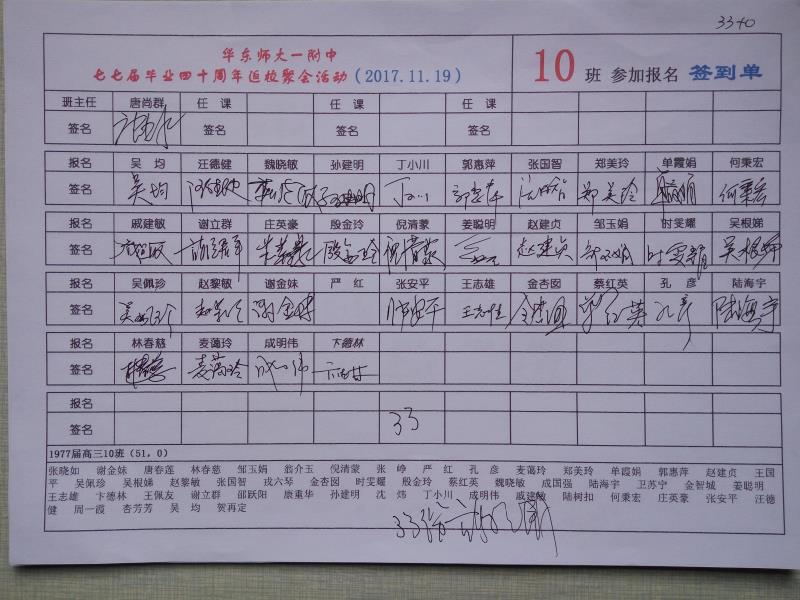 3340
华东师大一附中
七七届毕业四十周年返校聚会活动（2017.11.19）
10 班 参加报名 签到单
班主任 唐尚群 任 课 任 课 任 课
签名 签名 签名 签名
报名 吴 均 汪德健 魏晓敏 孙建明 丁小川 郭惠萍 张国智 郑美玲 单霞娟 何秉宏
签名 吴均 孙建明 丁小川 郭惠萍 郑美玲 何秉宏
报名 戚建敏 谢立群 庄英豪 殷金玲 倪清蒙 姜聪明 赵建贞 邹玉娟 时雯耀 吴根娣
签名 殷金玲 倪清蒙 赵建贞 邹玉娟 吴根娣
报名 吴佩珍 赵黎敏 谢金妹 严 红 张安平 王志雄 金杏囡 蔡红英 孔 彦 陆海宇
签名 谢金妹 张安平 王志雄 蔡红英 孔彦 陆海宇
报名 林春慈 麦蔼玲 成明伟 卞德林
签名 麦蔼玲
报名 33
签名
1977届高三10班（51，0）
张晓如 谢金妹 唐春莲 林春慈 邹玉娟 翁介玉 倪清蒙 张 峥 严 红 孔 彦 麦蔼玲 郑美玲 单霞娟 郭惠萍 赵建贞 王国
平 吴佩珍 吴根娣 赵黎敏 张国智 戎六琴 金杏囡 时雯耀 殷金玲 蔡红英 魏晓敏 成国强 陆海宇 卫苏宁 金智城 姜聪明
王志雄 卞德林 王佩友 谢立群 邵跃阳 康重华 孙建明 沈 炜 丁小川 成明伟 戚建敏 陆树扣 何秉宏 庄英豪 张安平 汪德
健 周一霞 杏芳芳 吴 均 贺再定